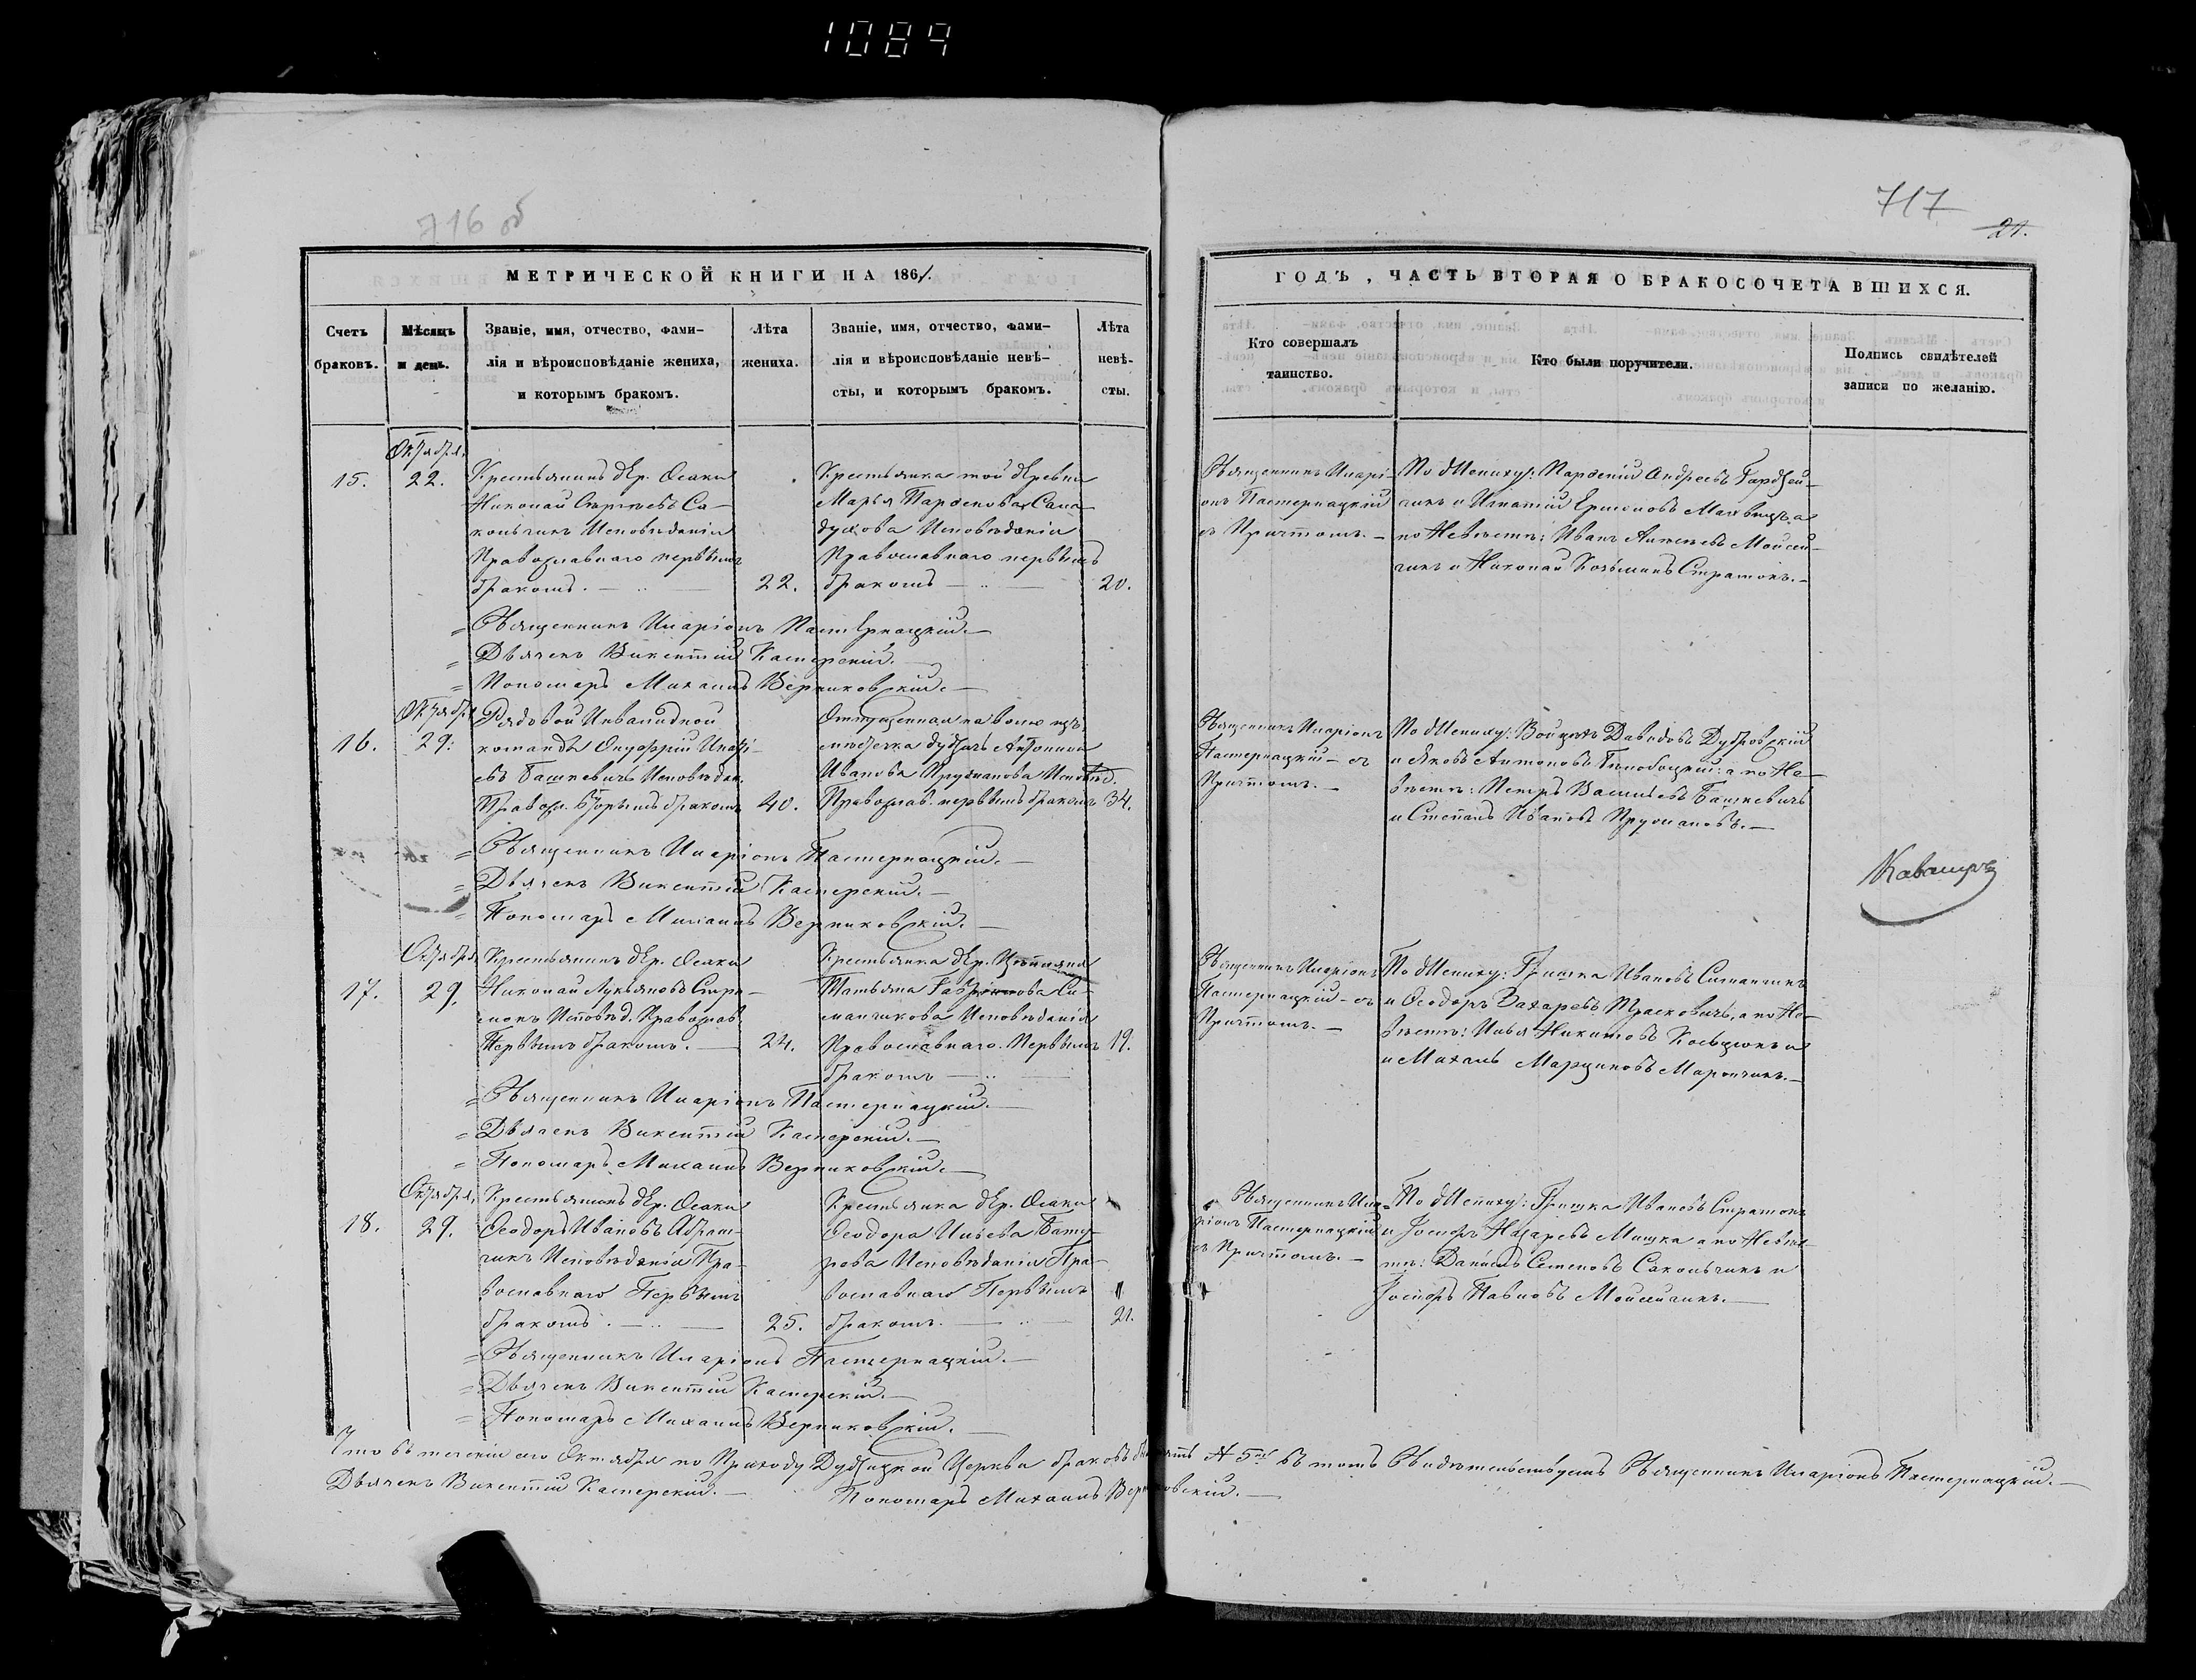 1089
716 об
717
21.
МЕТРИЧЕСКОЙ КНИГИ НА 1861.
Счетъ браковъ.
Мѣсяцъ и день.
Званіе, имя, отчество, фами-
лія и вѣроисповѣданіе жениха,
и которымъ бракомъ.
Лѣта жениха.
Званіе, имя, отчество, фами-
лія и вѣроисповѣданіе невѣ-
сты, и которымъ бракомъ.
Лѣта невѣ-
сты.
ГОДЪ, ЧАСТЬ ВТОРАЯ О БРАКОСОЧЕТАВШИХСЯ.
Кто совершалъ
таинство.
Кто были поручители.
Подпись свидѣтелей
записи по желанію.
Октября.
15.
22.
Крестьянинъ дер. Осаки
Николай Сергѣевъ Са-
кольчикъ Исповѣданія
Православнаго первымъ
бракомъ. —
22.
Крестьянка той деревни
Марья Парѳенова
Исповѣданія
Православнаго первымъ
бракомъ —
20.
Священникъ Иларі-
онъ Пастернацкій
съ Причтомъ. —
По Жениху: Парѳеній Андреевъ
чикъ и Игнатій
по Невѣстѣ: Иванъ Мойсей-
чикъ и Николай Козьминъ Страмокъ. —
= Священникъ Иларіонъ Пастернацкій. —
= Дьячекъ Викентій Касперскій. —
= Пономарь Михаилъ Верниковскій. —
Октября
16.
29.
Рядовой Инвалидной
команды Онуфрій
евъ Башкевичъ Исповѣдан.
Правосл. Вторымъ бракомъ
40.
Отпущенная на волю изъ
мѣстечка Антонина
Иванова Пружанова Исповѣд.
Православ. первымъ бракомъ
34.
Священникъ Иларіонъ
Пастернацкій — съ
Причтомъ. —
По Жениху: Войцехъ Давидовъ Дубровскій
и Яковъ Антоновъ а по Не-
вѣстѣ: Петръ Васильевъ Башкевичъ
и Степанъ Ивановъ Пружановъ. —
= Священникъ Иларіонъ Пастернацкій. —
= Дьячекъ Викентій Касперскій. —
= Пономарь Михаилъ Верниковскій. —
Октября
17.
29.
Крестьянинъ дер. Осаки
Николай Лукьяновъ Стра-
мокъ Исповѣд. Православ.
Первымъ бракомъ. —
24.
Крестьянка дер.
Татьяна Си-
манчикова Исповѣданія
Православнаго. Первымъ
бракомъ —
19.
Священникъ Иларіонъ
Пастернацкій — съ
Причтомъ. —
По Жениху: Гришка Ивановъ Симанчикъ
и Ѳеодоръ Захаревъ а по Не-
вѣстѣ: Илья Никитовъ и
и Михаилъ Марциновъ Марончикъ. —
= Священникъ Иларіонъ Пастернацкій. —
= Дьячекъ Викентій Касперскій. —
= Пономарь Михаилъ Верниковскій. —
Октября,
18.
29.
Крестьянинъ дер. Осаки
Ѳеодоръ Ивановъ Абрам-
чикъ Исповѣданія Пра-
вославнаго Первымъ
бракомъ. —
25.
Крестьянка дер. Осаки
Ѳеодора Ильева Бату-
рова Исповѣданія Пра-
вославнаго Первымъ
бракомъ. —
21.
Священникъ Ила-
ріонъ Пастернацкій
съ Причтомъ. —
По Жениху: Гришка Ивановъ Страмокъ
и Іосифъ Назаревъ Машка а по Невѣс-
тѣ: Данилъ Семеновъ Сакольчикъ и
Іосифъ Павловъ Мойсейчикъ. —
= Священникъ Иларіонъ Пастернацкій. —
= Дьячекъ Викентій Касперскій. —
= Пономарь Михаилъ Верниковскій. —
Что въ теченіи сего Октября по Приходу Дубицкой Церкви браковъ № 5й въ томъ Свидѣтельствуетъ Священникъ Иларіонъ Пастернацкій. —
Дьячекъ Викентій Касперскій. —
Пономарь Михаилъ Верниковскій. —